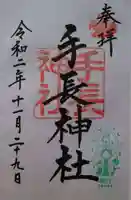 奉拝
手長神社
手長神社
令和二年十一月二十九日